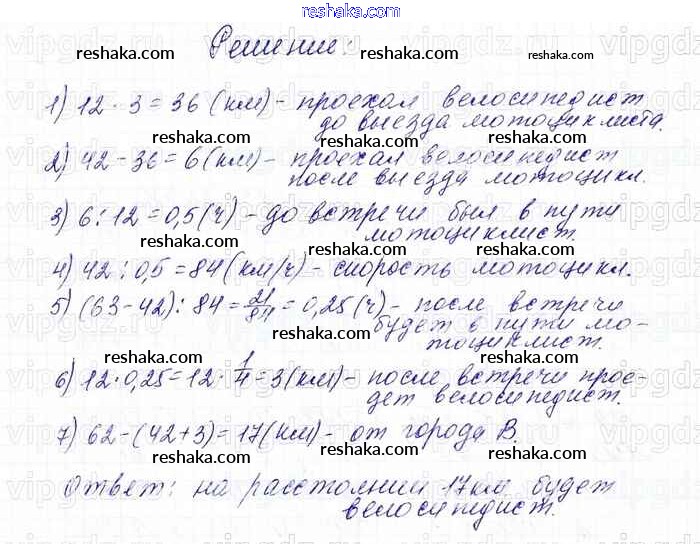 reshaka.com
Решение:
reshaka.com reshaka.com reshaka.com
1) 12 · 3 = 36 (км) - проехал велосипедист
до выезда мотоциклиста.
reshaka.com reshaka.com
2) 42 - 36 = 6 (км) - проехал велосипедист
после выезда мотоцикл.
reshaka.com reshaka.com reshaka.com
3) 6 : 12 = 0,5 (ч) - до встречи был в пути
мотоциклист.
reshaka.com reshaka.com
4) 42 : 0,5 = 84 (км/ч) - скорость мотоцикл.
5) (63 - 42) : 84 = 21/84 = 0,25 (ч) - после встречи
reshaka.com reshaka.com reshaka.com
будет в пути мо-
тоциклист.
reshaka.com reshaka.com
6) 12 · 0,25 = 12 · 1/4 = 3 (км) - после встречи прое-
дет велосипедист.
reshaka.com reshaka.com reshaka.com
7) 62 - (42 + 3) = 17 (км) - от города В.
reshaka.com reshaka.com
Ответ: на расстоянии 17 км будет
велосипедист.
reshaka.com reshaka.com reshaka.com